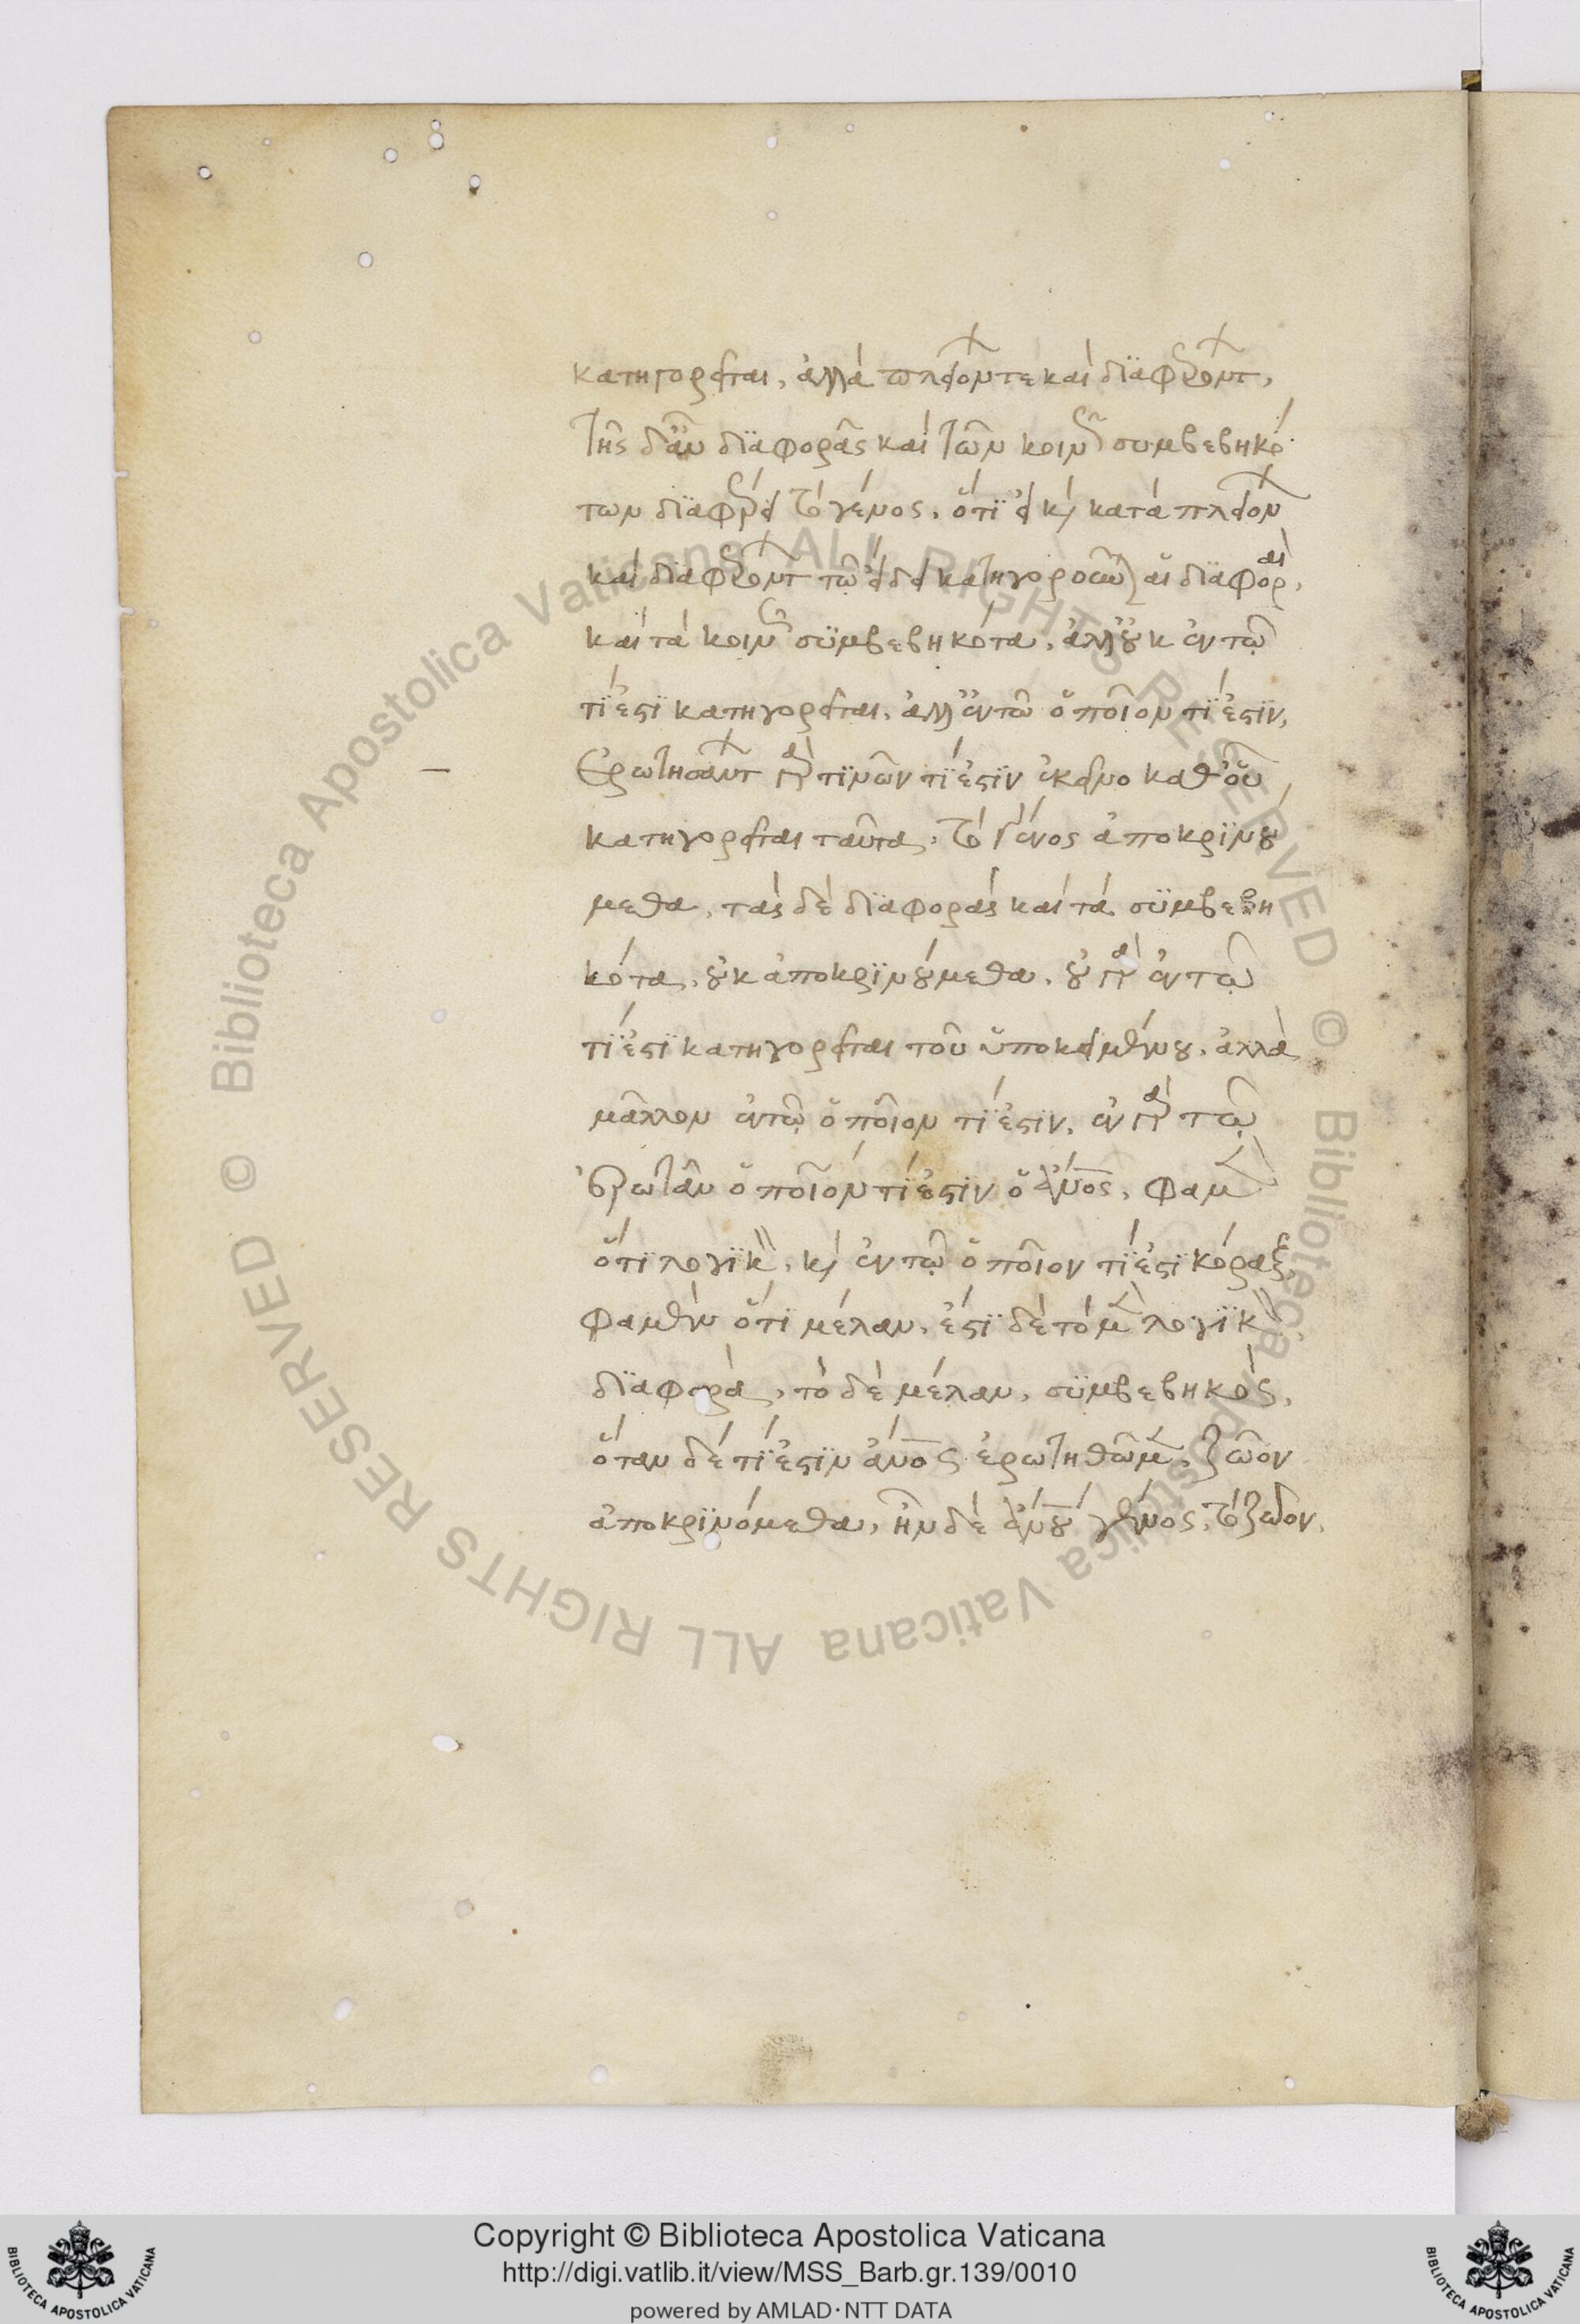 κατηγορεῖται, ἀλλὰ πλειόνων τε καὶ διαφερόντων,
τῆς δ᾽ αὖ διαφορᾶς καὶ τῶν κοινῶς συμβεβηκό
των διαφέρει τὸ γένος, ὅτι εἰ καὶ κατὰ πλειόνων
καὶ διαφερόντων τῷ εἴδει κατηγοροῦνται αἱ διαφοραὶ,
καὶ τὰ κοινῶς συμβεβηκότα, ἀλλ᾽ οὐκ ἐν τῷ
τί ἐστι κατηγορεῖται, ἀλλ᾽ ἐν τῷ ὁποῖον τί ἐστιν,
ἐρωτησάντων γάρ τινῶν τί ἐστιν ἐκεῖνο καθ᾽ οὗ
κατηγορεῖται ταῦτα, τὸ γένος ἀποκρινού
μεθα, τὰς δὲ διαφορὰς καὶ τὰ συμβεβη
κότα, οὐκ ἀποκρινούμεθα, οὐ γὰρ ἐν τῷ
τί ἐστι κατηγορεῖται τοῦ ὑποκειμένου, ἀλλὰ
μᾶλλον ἐν τῷ ὁποῖον τί ἐστιν, ἐν γὰρ τῷ
ἐρωτᾶν ὁποῖον τί ἐστιν ὁ ἄνος, φαμὲν
ὅτι λογικὸν, καὶ ἐν τῷ ὁποῖον τί ἐστι κόραξ,
φαμὲν ὅτι μέλαν, ἔστι δὲ τὸ μὲν λογικὸν
διαφορὰ, τὸ δὲ μέλαν, συμβεβηκὸς,
ὅταν δὲ τί ἐστιν ἄνος ἐρωτηθῶμεν, ζῶον
ἀποκρινόμεθα, ἦν δὲ ἀνου γένος, τὸ ζῶον,
© Biblioteca Apostolica Vaticana ALL RIGHTS RESERVED © Biblioteca Apostolica Vaticana ALL RIGHTS RESERVED
Copyright © Biblioteca Apostolica Vaticana
http://digi.vatlib.it/view/MSS_Barb.gr.139/0010
powered by AMLAD·NTT DATA
BIBLIOTECA APOSTOLICA VATICANA
BIBLIOTECA APOSTOLICA VATICANA